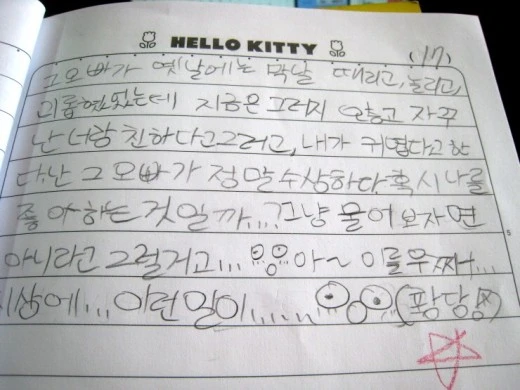 HELLO KITTY
(17)
그 오빠가 옛날에는 막날 때리고, 놀리고,
괴롭혔었는데 지금은 그러지 않고 자꾸
난 너랑 친하다고 그러고, 내가 귀엽다고 한
다. 난 그 오빠가 정말 수상하다 혹시 나를
좋아하는 것일까...? 그냥 물어보자면
아니라고 그럴거고... 아~ 이를우째...
세상에... 이런일이...... (황당)